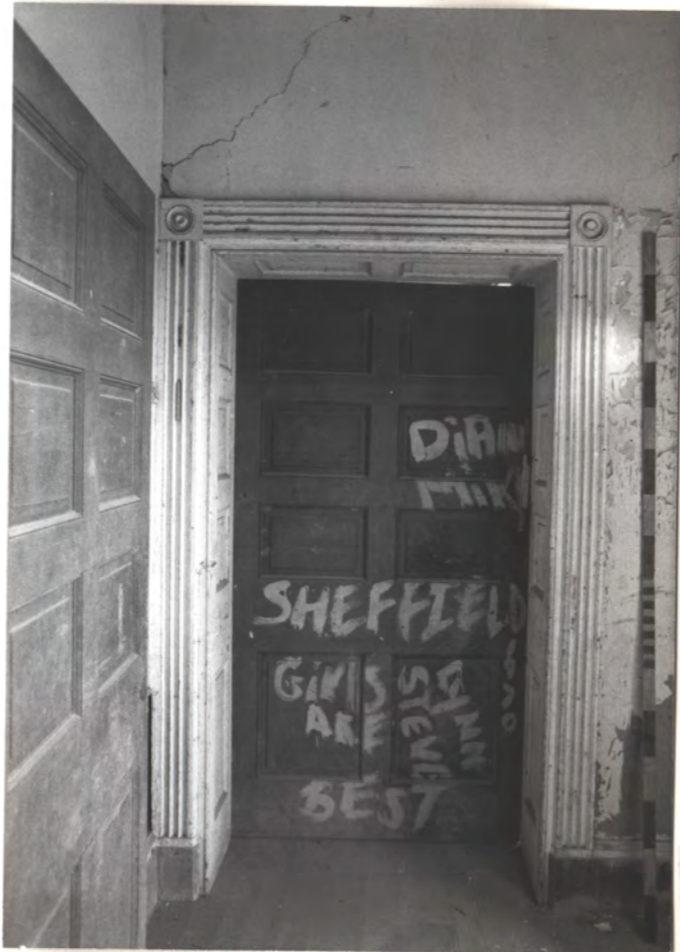 DiAN
MIKE
SHEFFIELD
GiRlS
ARE
BEST
STEVE